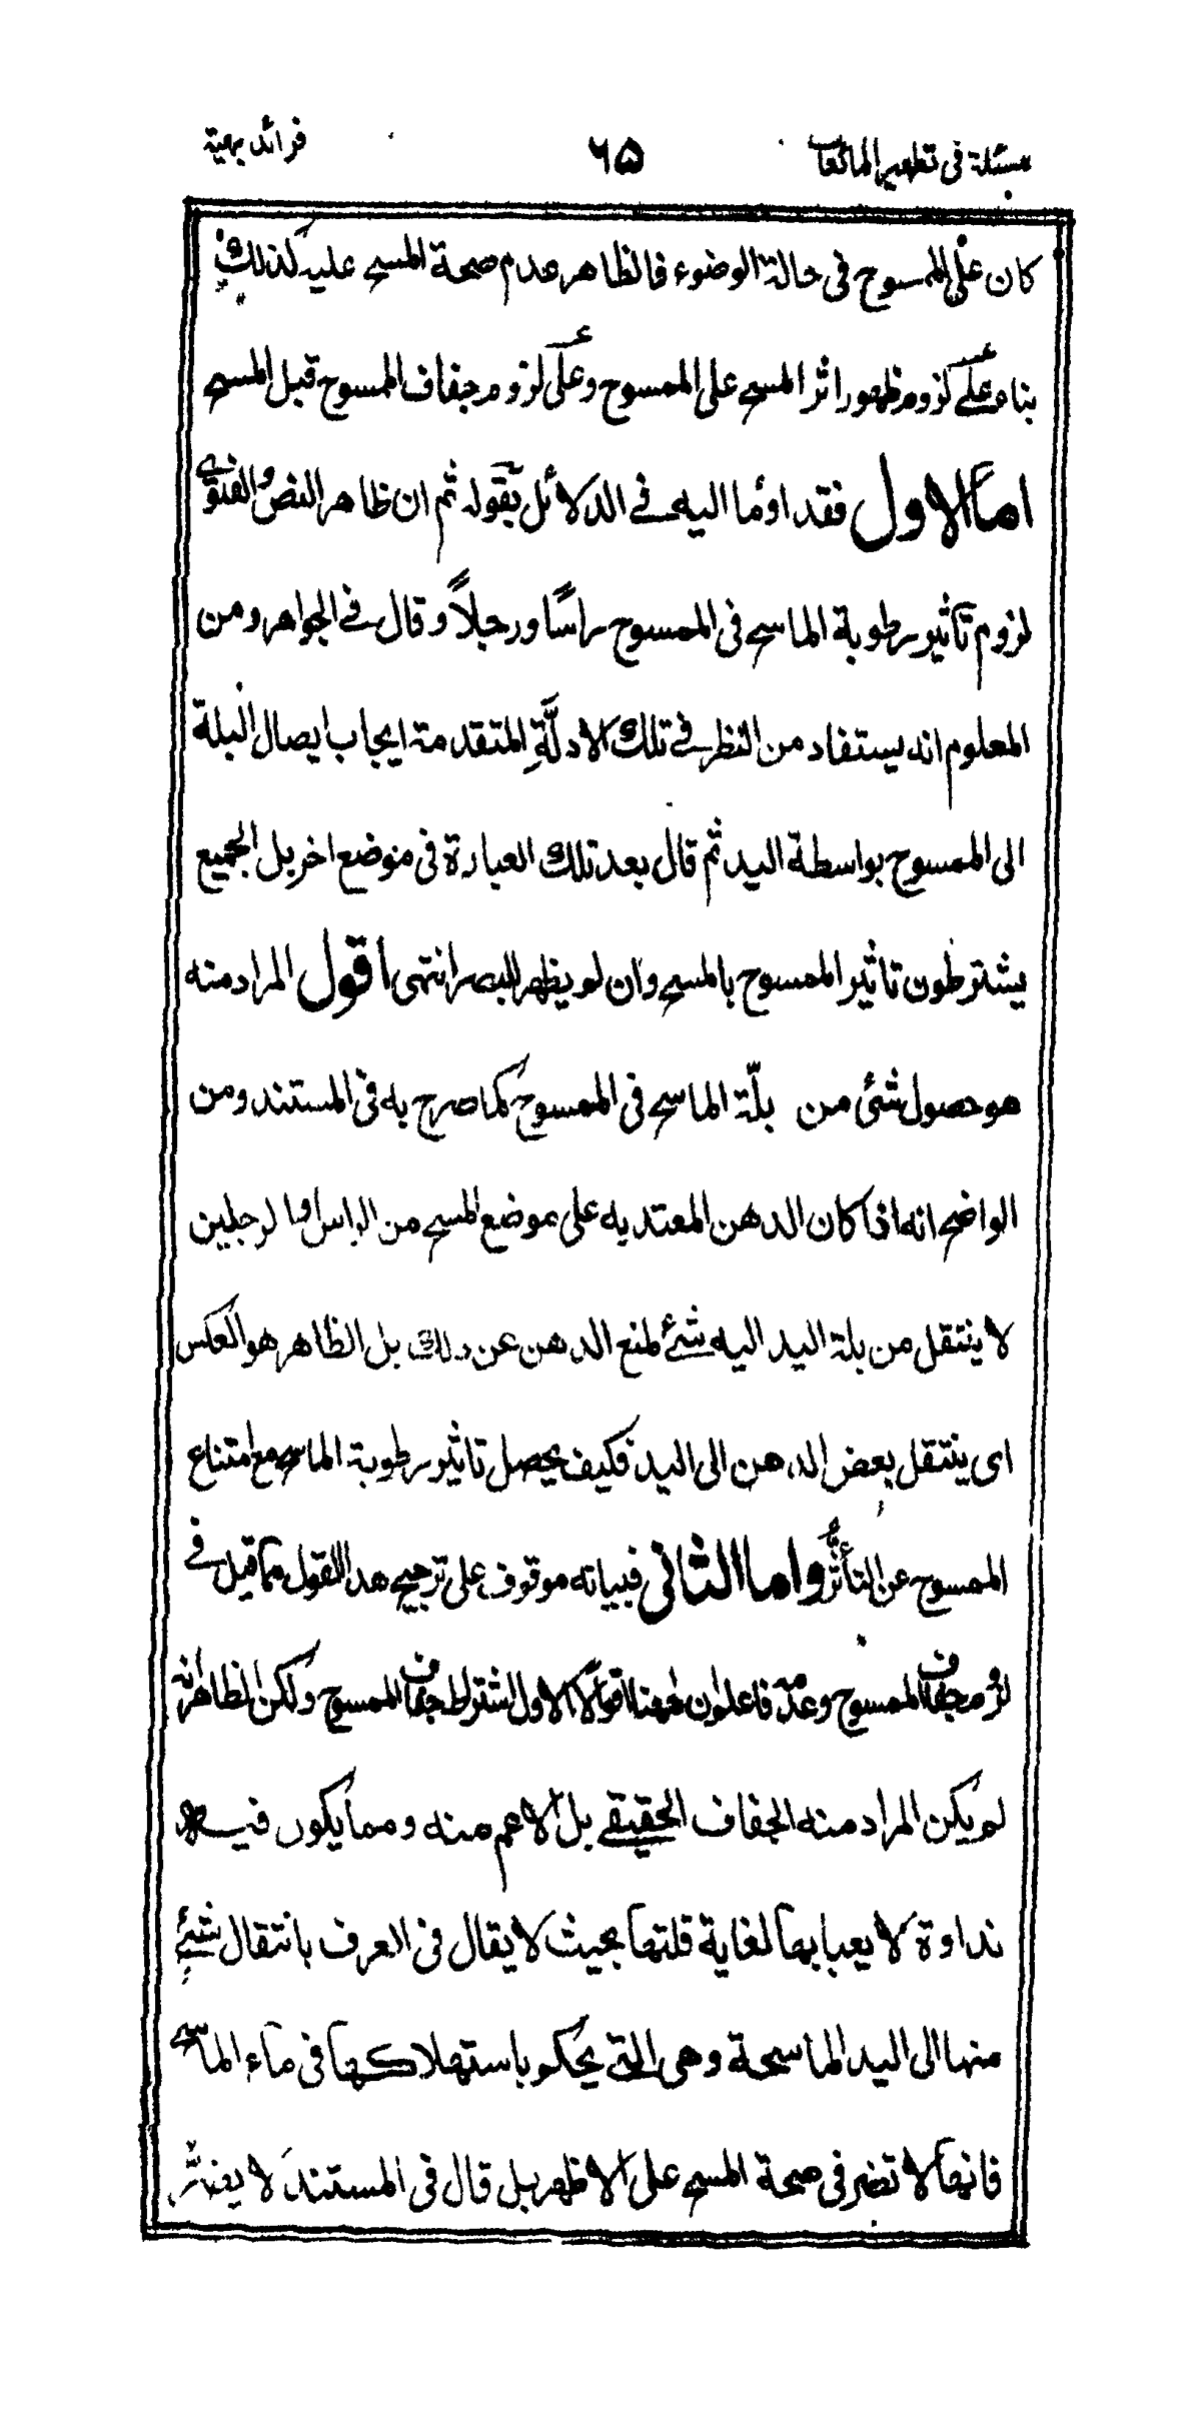 مسئلة فى تطهير المائعات ۶۵ فرائد بهية
كان على الممسوح فى حالة الوضوء فالظاهر عدم صحة المسح عليه كذلك
بناء على لزوم ظهور اثر المسح على الممسوح وعلى لزوم جفاف الممسوح قبل المسح
اما الاول فقد اوئما اليه فى الدلائل بقوله ثم ان ظاهر النص والفتوى
لزوم تأثير رطوبة الماسح فى الممسوح راسًا ورجلاً وقال فى الجواهر ومن
المعلوم انه يستفاد من النظر فى تلك الادلَّةِ المتقدمة ايجاب ايصال البلة
الى الممسوح بواسطة اليد ثم قال بعد تلك العبارة فى موضع اخر بل الجميع
يشترطون تاثير الممسوح بالمسح وان لم يظهر للبصر انتهى اقول المراد منه
هو حصول شئ من بلّة الماسح فى الممسوح كما صرح به فى المستند ومن
الواضح انه اذا كان الدهن المعتد به على موضع المسح من الراس او الرجلين
لا ينتقل من بلة اليد اليه شئ لمنع الدهن عن ذلك بل الظاهر هو العكس
اى ينتقل بعض الدهن الى اليد فكيف يحصل تاثير رطوبة الماسح مع امتناع
الممسوح عن التأثُّر واما الثانى فبيانه موقوف على ترجيح هذا القول مما قيل فى
لزوم جفاف الممسوح وعدمه فاعلم ان ههنا اقوالًا الاول اشتراط جفاف الممسوح ولكن الظاهر انه
لم يكن المراد منه الجفاف الحقيقے بل الاعم منه ومما يكون فيه
نداوة لا يعبا بها لغاية قلتها بحيث لا يقال فى العرف بانتقال شئٍ
منها الى اليد الماسحة وهى التى يحكم باستهلاكها فى ماء الماسح
فانها لا تضر فى صحة المسح على الاظهر بل قال فى المستند لا يضر